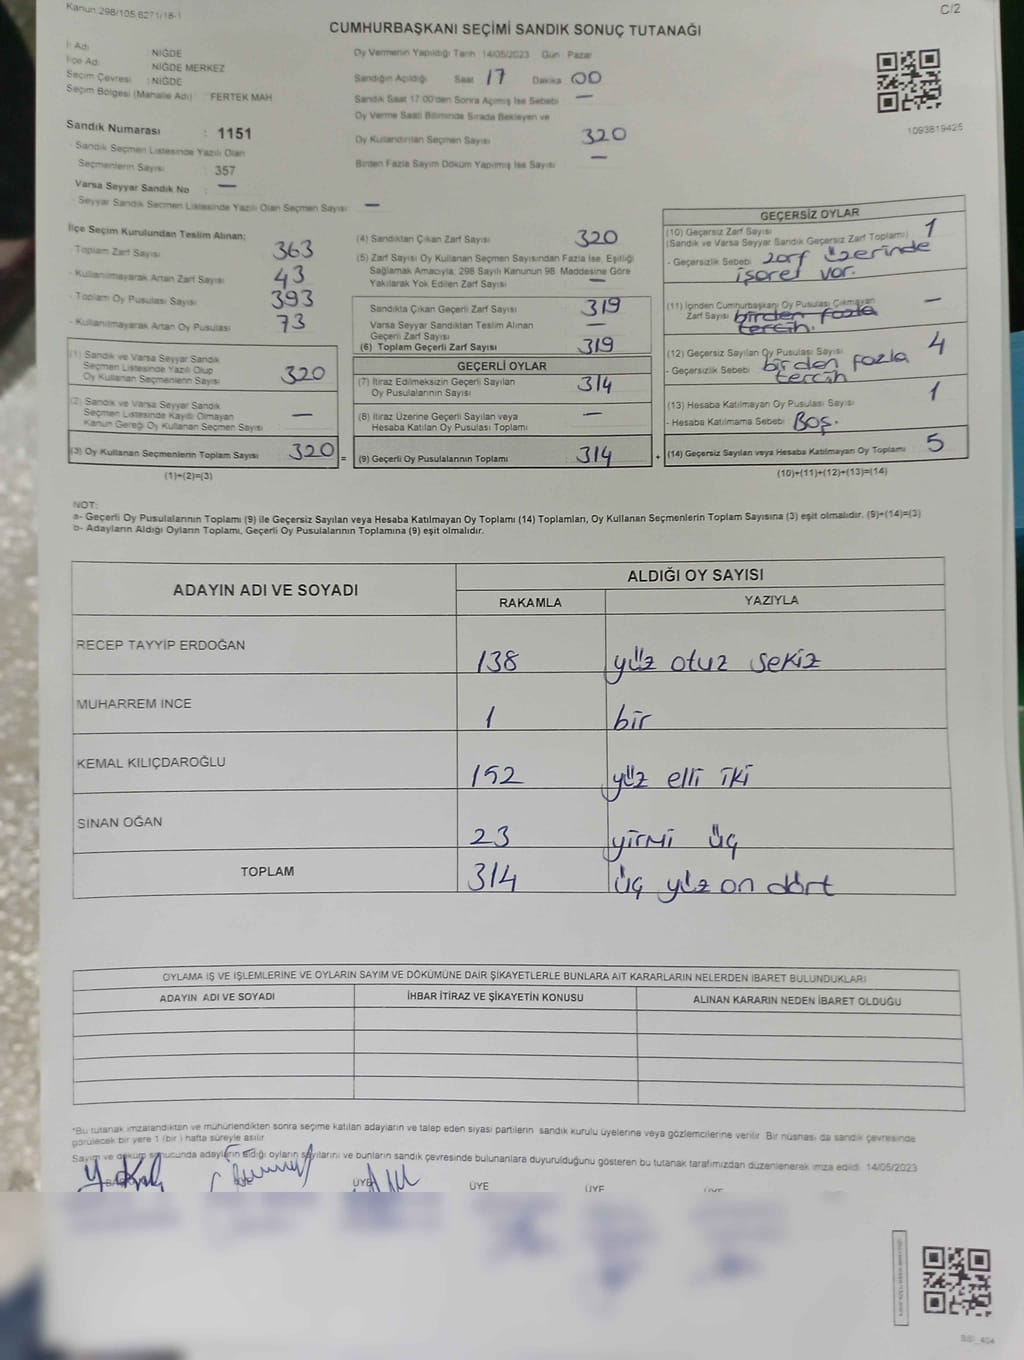 Kanun.298/105,6271/18-1
C/2
CUMHURBAŞKANI SEÇİMİ SANDIK SONUÇ TUTANAĞI
İl Adı NİĞDE
İlçe Adı NİĞDE MERKEZ
Seçim Çevresi : NİĞDE
Seçim Bölgesi (Mahalle Adı) FERTEK MAH
Sandık Numarası : 1151
Sandık Seçmen Listesinde Yazılı Olan
Seçmenlerin Sayısı 357
Varsa Seyyar Sandık No : —
- Seyyar Sandık Seçmen Listesinde Yazılı Olan Seçmen Sayısı : —
Oy Vermenin Yapıldığı Tarih 14/05/2023 Gün Pazar
Sandığın Açıldığı Saat 17 Dakika 00
Sandık Saat 17:00'den Sonra Açılmış İse Sebebi —
Oy Verme Saati Bitiminde Sırada Bekleyen ve
Oy Kullandırılan Seçmen Sayısı 320
Birden Fazla Sayım Döküm Yapılmış İse Sayısı —
1093819425
İlçe Seçim Kurulundan Teslim Alınan;
- Toplam Zarf Sayısı 363
- Kullanılmayarak Artan Zarf Sayısı 43
- Toplam Oy Pusulası Sayısı 393
- Kullanılmayarak Artan Oy Pusulası 73
(1) Sandık ve Varsa Seyyar Sandık
Seçmen Listesinde Yazılı Olup
Oy Kullanan Seçmenlerin Sayısı 320
(2) Sandık ve Varsa Seyyar Sandık
Seçmen Listesinde Kayıtlı Olmayan
Kanun Gereği Oy Kullanan Seçmen Sayısı —
(3) Oy Kullanan Seçmenlerin Toplam Sayısı 320 =
(1)+(2)=(3)
(4) Sandıktan Çıkan Zarf Sayısı 320
(5) Zarf Sayısı Oy Kullanan Seçmen Sayısından Fazla İse, Eşitliği
Sağlamak Amacıyla, 298 Sayılı Kanunun 98. Maddesine Göre
Yakılarak Yok Edilen Zarf Sayısı —
Sandıkta Çıkan Geçerli Zarf Sayısı 319
Varsa Seyyar Sandıktan Teslim Alınan
Geçerli Zarf Sayısı —
(6) Toplam Geçerli Zarf Sayısı 319
GEÇERLİ OYLAR
(7) İtiraz Edilmeksizin Geçerli Sayılan
Oy Pusulalarının Sayısı 314
(8) İtiraz Üzerine Geçerli Sayılan veya
Hesaba Katılan Oy Pusulası Toplamı —
(9) Geçerli Oy Pusulalarının Toplamı 314 +
GEÇERSİZ OYLAR
(10) Geçersiz Zarf Sayısı 1
(Sandık ve Varsa Seyyar Sandık Geçersiz Zarf Toplamı)
- Geçersizlik Sebebi zarf üzerinde
işaret var.
(11) İçinden Cumhurbaşkanı Oy Pusulası Çıkmayan
Zarf Sayısı birden fazla —
tercih.
(12) Geçersiz Sayılan Oy Pusulası Sayısı 4
- Geçersizlik Sebebi birden fazla
tercih
(13) Hesaba Katılmayan Oy Pusulası Sayısı 1
- Hesaba Katılmama Sebebi Boş.
(14) Geçersiz Sayılan veya Hesaba Katılmayan Oy Toplamı 5
(10)+(11)+(12)+(13)=(14)
NOT:
a- Geçerli Oy Pusulalarının Toplamı (9) ile Geçersiz Sayılan veya Hesaba Katılmayan Oy Toplamı (14) Toplamları, Oy Kullanan Seçmenlerin Toplam Sayısına (3) eşit olmalıdır. (9)+(14)=(3)
b- Adayların Aldığı Oyların Toplamı, Geçerli Oy Pusulalarının Toplamına (9) eşit olmalıdır.
ADAYIN ADI VE SOYADI
ALDIĞI OY SAYISI
RAKAMLA YAZIYLA
RECEP TAYYİP ERDOĞAN 138 yüz otuz sekiz
MUHARREM İNCE 1 bir
KEMAL KILIÇDAROĞLU 152 yüz elli iki
SİNAN OĞAN 23 yirmi üç
TOPLAM 314 üç yüz on dört
OYLAMA İŞ VE İŞLEMLERİNE VE OYLARIN SAYIM VE DÖKÜMÜNE DAİR ŞİKAYETLERLE BUNLARA AİT KARARLARIN NELERDEN İBARET BULUNDUKLARI
ADAYIN ADI VE SOYADI İHBAR İTİRAZ VE ŞİKAYETİN KONUSU ALINAN KARARIN NEDEN İBARET OLDUĞU
*Bu tutanak imzalandıktan ve mühürlendikten sonra seçime katılan adayların ve talep eden siyasi partilerin sandık kurulu üyelerine veya gözlemcilerine verilir. Bir nüshası da sandık çevresinde
görülecek bir yere 1 (bir) hafta süreyle asılır
Sayım ve döküm sonucunda adayların aldığı oyların sayılarını ve bunların sandık çevresinde bulunanlara duyurulduğunu gösteren bu tutanak tarafımızdan düzenlenerek imza edildi. 14/05/2023
ÜYE ÜYE ÜYE